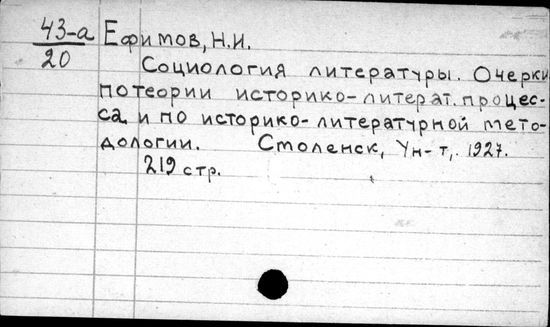 43-а Ефимов, Н.И.
20
Социология литературы. Очерки
по теории историко-литерат. процес-
са и по историко-литературной мето-
дологии. Смоленск, Ун-т, 1927.
219 стр.